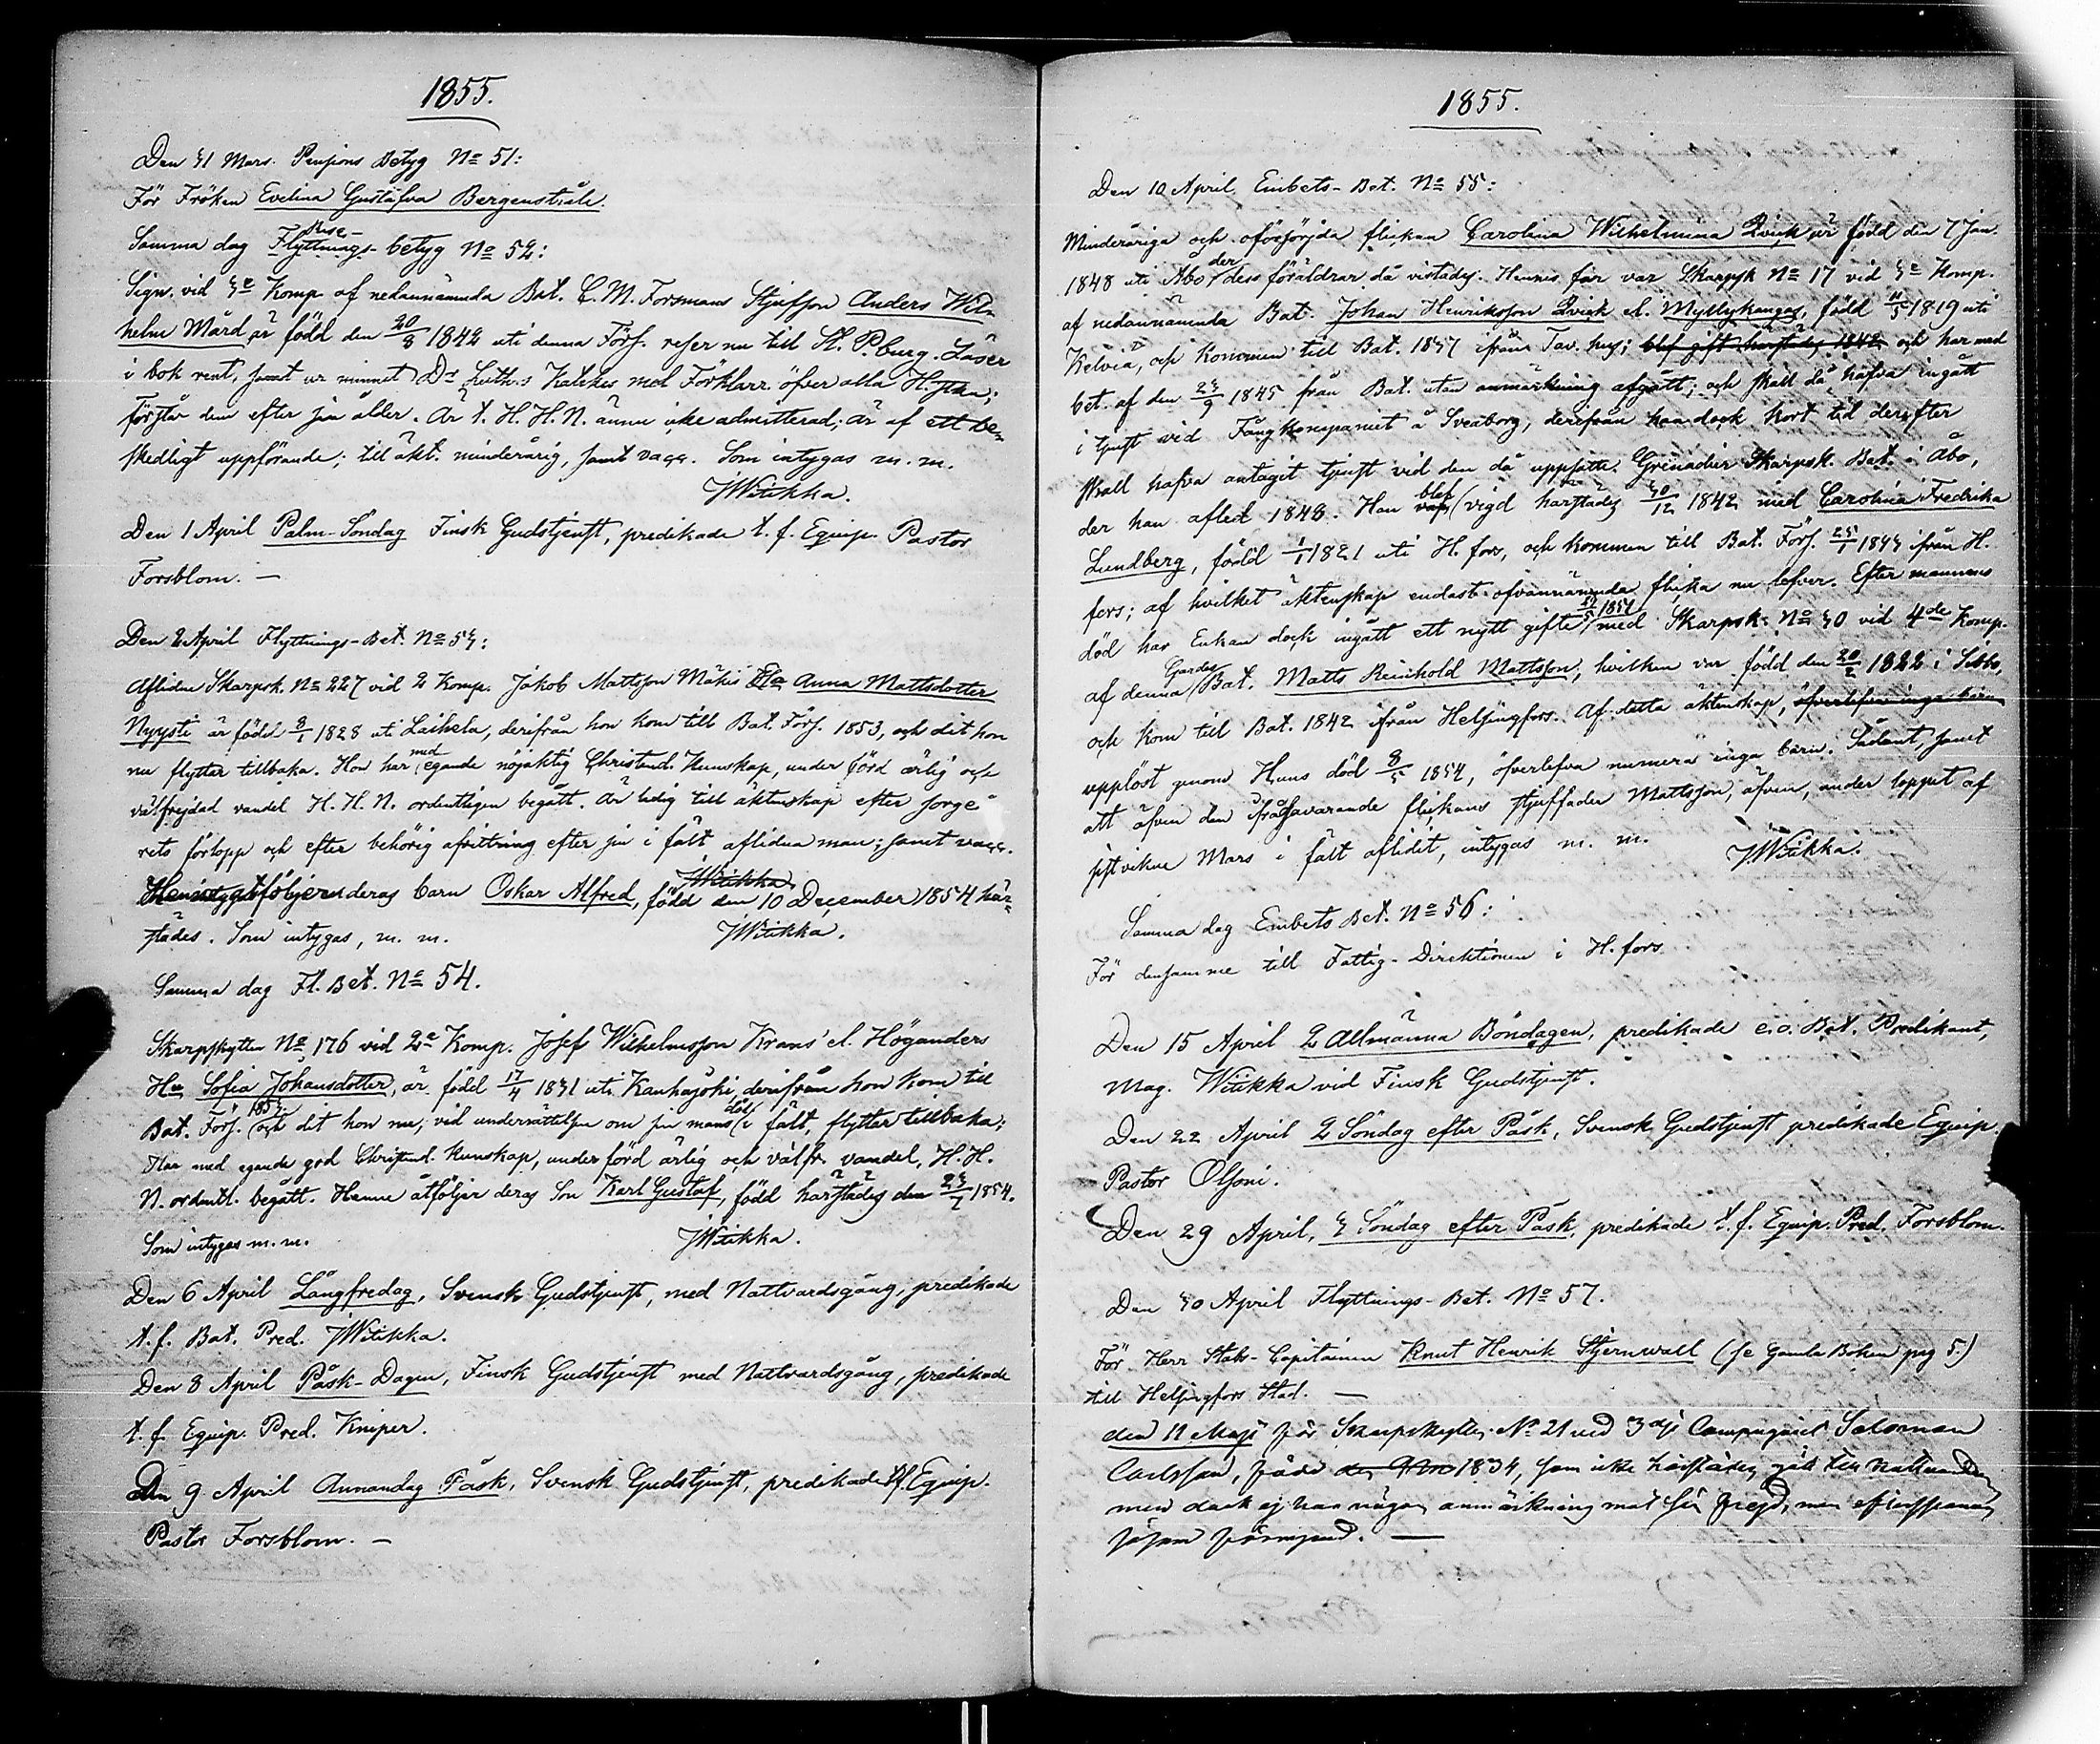 1855.
Den 31 Mars. Pensions Betyg No 51:
För Fröken Evelina Gustafva Bergenstråle.
Rese-
Samma dag Flyttnings-betyg No 52:
Sign. vid 3e Komp. af nedannämnda Bat. C. M. Forsmans Stjufson Anders Wil-
helm Mård är född den 20/8 1842 uti denna Förs. reser nu till St. P.burg. Läser
i bok rent, samt ur minnet Dr Luth:s Katekes med Förklarr. öfver alla H.stken;
förstår den efter sin ålder. Är t. H. H. N. ännu icke admitterad; är af ett be-
skedligt uppförande; till äkt. minderårig, samt vacc. Som intygas m. m.
JWitikka.
Den 1 April Palm-Söndag Finsk Gudstjenst, predikade t. f. Equip. Pastor
Forsblom. —
Den 2 April Flyttnings-Bet. No 53:
Aflidne Skarpsk. No 227 vid 2 Komp. Jakob Mattsson Mäkis Hu Anna Mattsdotter
Nyysti är född 8/1 1828 uti Laihela, derifrån hon kom till Bat. Förs. 1853, och dit hon
nu flyttar tillbaka. Hon har med egande nöjaktig Christend. Kunskap, under förd ärlig och
välfrejdad vandel H. H. N. ordentligen begått. Är ledig till äktenskap efter sorgeå
rets förlopp och efter behörig afvittring efter sin i fält aflidna man; samt vacc.
Witikka
Henne åtföljer deras barn Oskar Alfred, född den 10 December 1854 här-
städes. Som intygas, m. m. JWitikka.
Samma dag Fl. Bet. No 54.
Skarpskytten No 176 vid 2e Komp. Josef Wilhelmsson Krans el. Höganders
Hu Sofia Johansdotter, är född 17/4 1831 uti Kanhajoki, derifrån hon kom till
Bat. Förs. 1853 och dit hon nu, vid underrättelsen om sin mans död i fält, flyttar tillbaka;
Har med egande god Christend. kunskap, under förd ärlig och välfr. vandel, H. H.
N. ordentl. begått. Henne åtföljer deras Son Karl Gustaf, född härstädes den 23/2 1854.
Som intygas m. m. JWitikka.
Den 6 April Långfredag, Svensk Gudstjenst, med Nattvardsgång, predikade
t. f. Bat. Pred. JWitikka.
Den 8 April Påsk-Dagen, Finsk Gudstjenst med Nattvardsgång, predikade
t. f. Equip. Pred. Kniper.
Den 9 April Annandag Påsk, Svensk Gudstjenst, predikade tf Equip.
Pastor Forsblom. —
1855.
Den 10 April. Embets-Bet. No 55:
Minderåriga och oförsörjda flickan Carolina Wilhelmina Qvick är född den 7 Jan.
1848 uti Åbo, der dess föräldrar då vistades. Hennes far var Skarpsk No 17 vid 3e Komp.
af nedannämnda Bat. Johan Henriksson Qvick el. Myllykangas, född 11/5 1819 uti
Kelviå, och kommen till Bat. 1837 ifrån Tav. hus; blef gift härstädes 1842 och har med
bet. af den 23/9 1845 från Bat. utan anmärkning afgått; och skall då hafva ingått
i tjenst vid Fångkompaniet å Sveaborg, derifrån han dock kort tid derefter
skall hafva antagit tjenst vid den då uppsatte Grenadier Skarpsk. Bat. i Åbo,
der han afled 1848. Han blef vigd härstädes 30/12 1842 med Carolina Fredrika
Lundberg, född 1/1 1821 uti H. fors, och kommen till Bat. Förs. 25/1 1843 ifrån H.
fors; af hvilket äktenskap endast ofvannämnda flicka nu lefver. Efter mannens
död har Enkan dock ingått ett nytt gifte 1851 med Skarpsk. No 30 vid 4de Komp.
af denna Gardes Bat. Matts Reinhold Mattsson, hvilken var född den 20/2 1822 i Sibbo,
och kom till Bat. 1842 ifrån Helsingfors. Af detta äktenskap, öfverlefva inga barn
upplöst genom Huns död 8/5 1854, öfverlefva numera inga barn. Sådant, samt
att äfven den ifrågavarande flickans stjuffader Mattsson, äfven, under loppet af
sistvikne Mars i fält aflidit, intygas m. m. JWitikka.
Samma dag Embets Bet. No 56:
För densamme till Fattig-Direktionen i H. fors
Den 15 April 2 Allmänna Böndagen, predikade e. o. Bat. Predikant,
Mag. Witikka vid Finsk Gudstjenst.
Den 22 April 2 Söndag efter Påsk, Svensk Gudstjenst predikade Equip.
Pastor Olsoni.
Den 29 April, 3 Söndag efter Påsk, predikade t. f. Equip. Pred. Forsblom.
Den 30 April Flyttnings-Bet. No 57.
För Herr Stabs-Capitainen Knut Henrik Stjernvall (se Gamla Boken pag 5)
till Helsingfors Stad. —
den 11 Maji för Skarpskytten No 21 vid 3dje Compagniet Salomon
Carlsson, född 1834, som icke härstädes gått till nattvarden
men dock ej har någon anmärkning mot sin frejd, men
såsom